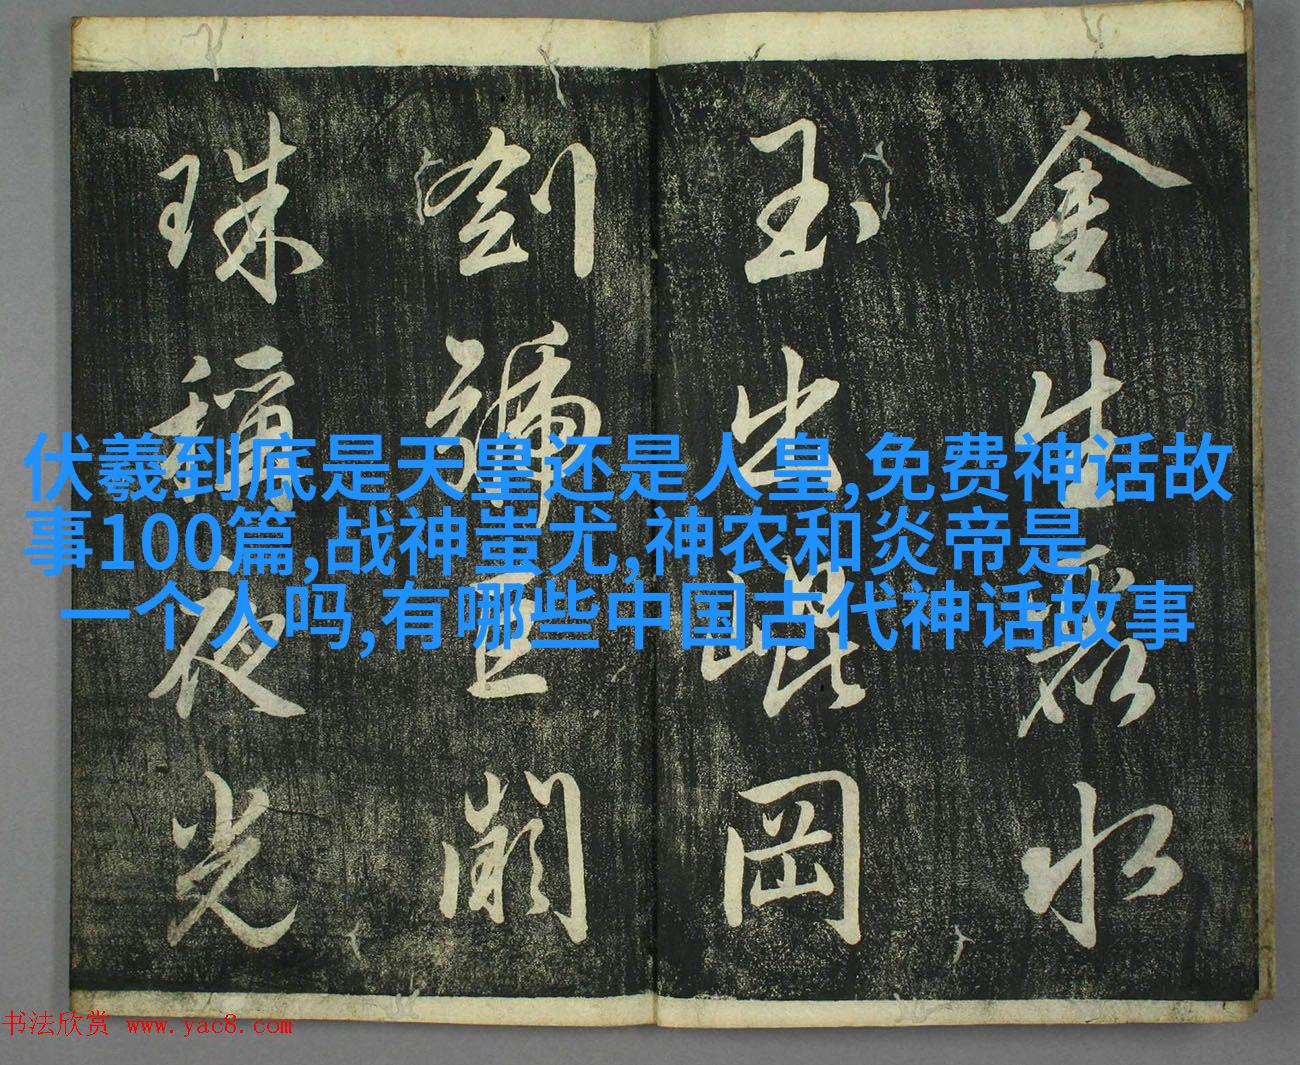 金生麗水
玉出崐岡
劍號巨闕
珠稱夜光
伏羲到底是天皇还是人皇,免费神话故
事100篇,战神蚩尤,神农和炎帝是
一个人吗,有哪些中国古代神话故事
书法欣赏 www.yac8.com